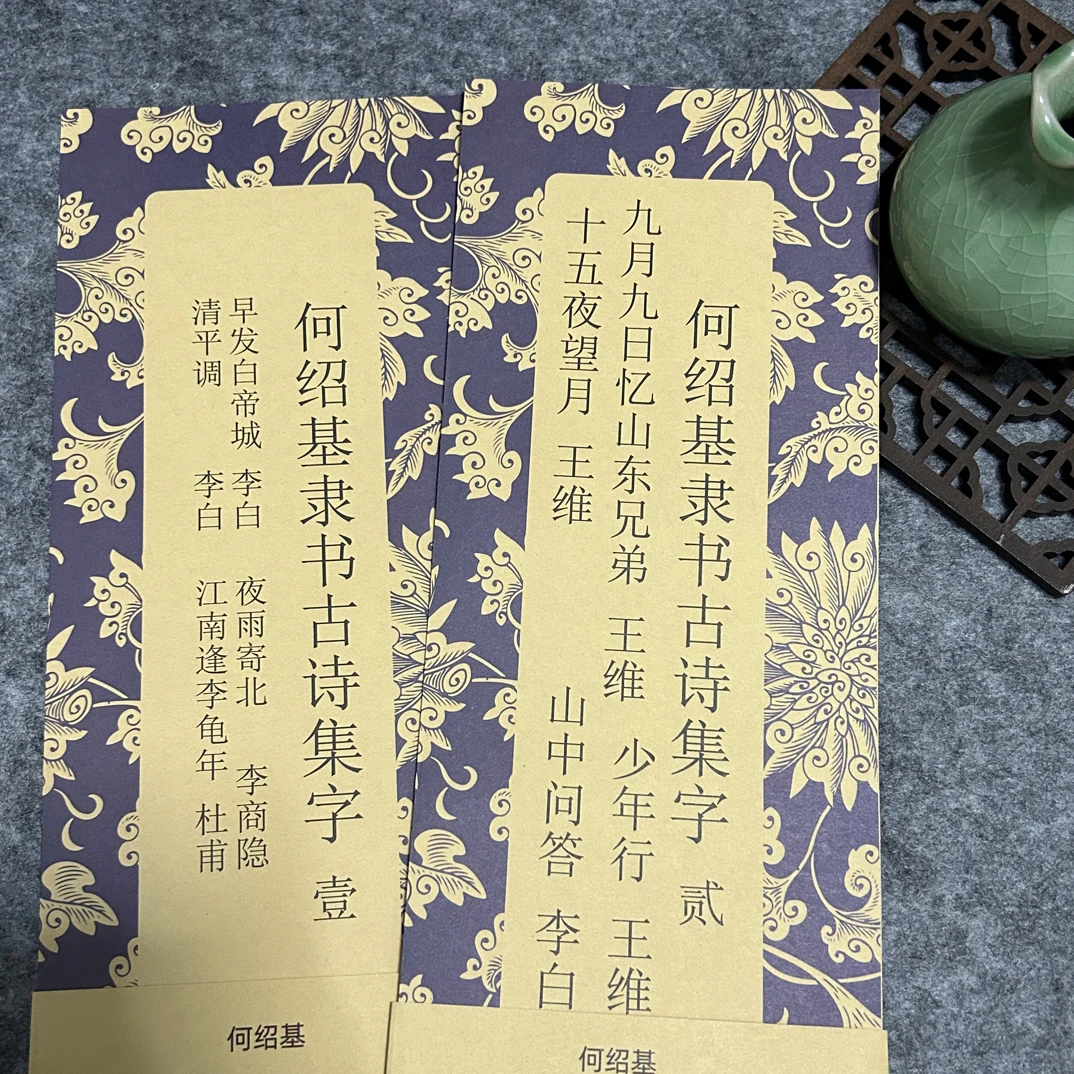 何绍基隶书古诗集字 壹
早发白帝城 李白 夜雨寄北 李商隐
清平调 李白 江南逢李龟年 杜甫
何绍基
何绍基隶书古诗集字 贰
九月九日忆山东兄弟 王维 少年行 王维
十五夜望月 王维 山中问答 李白
何绍基